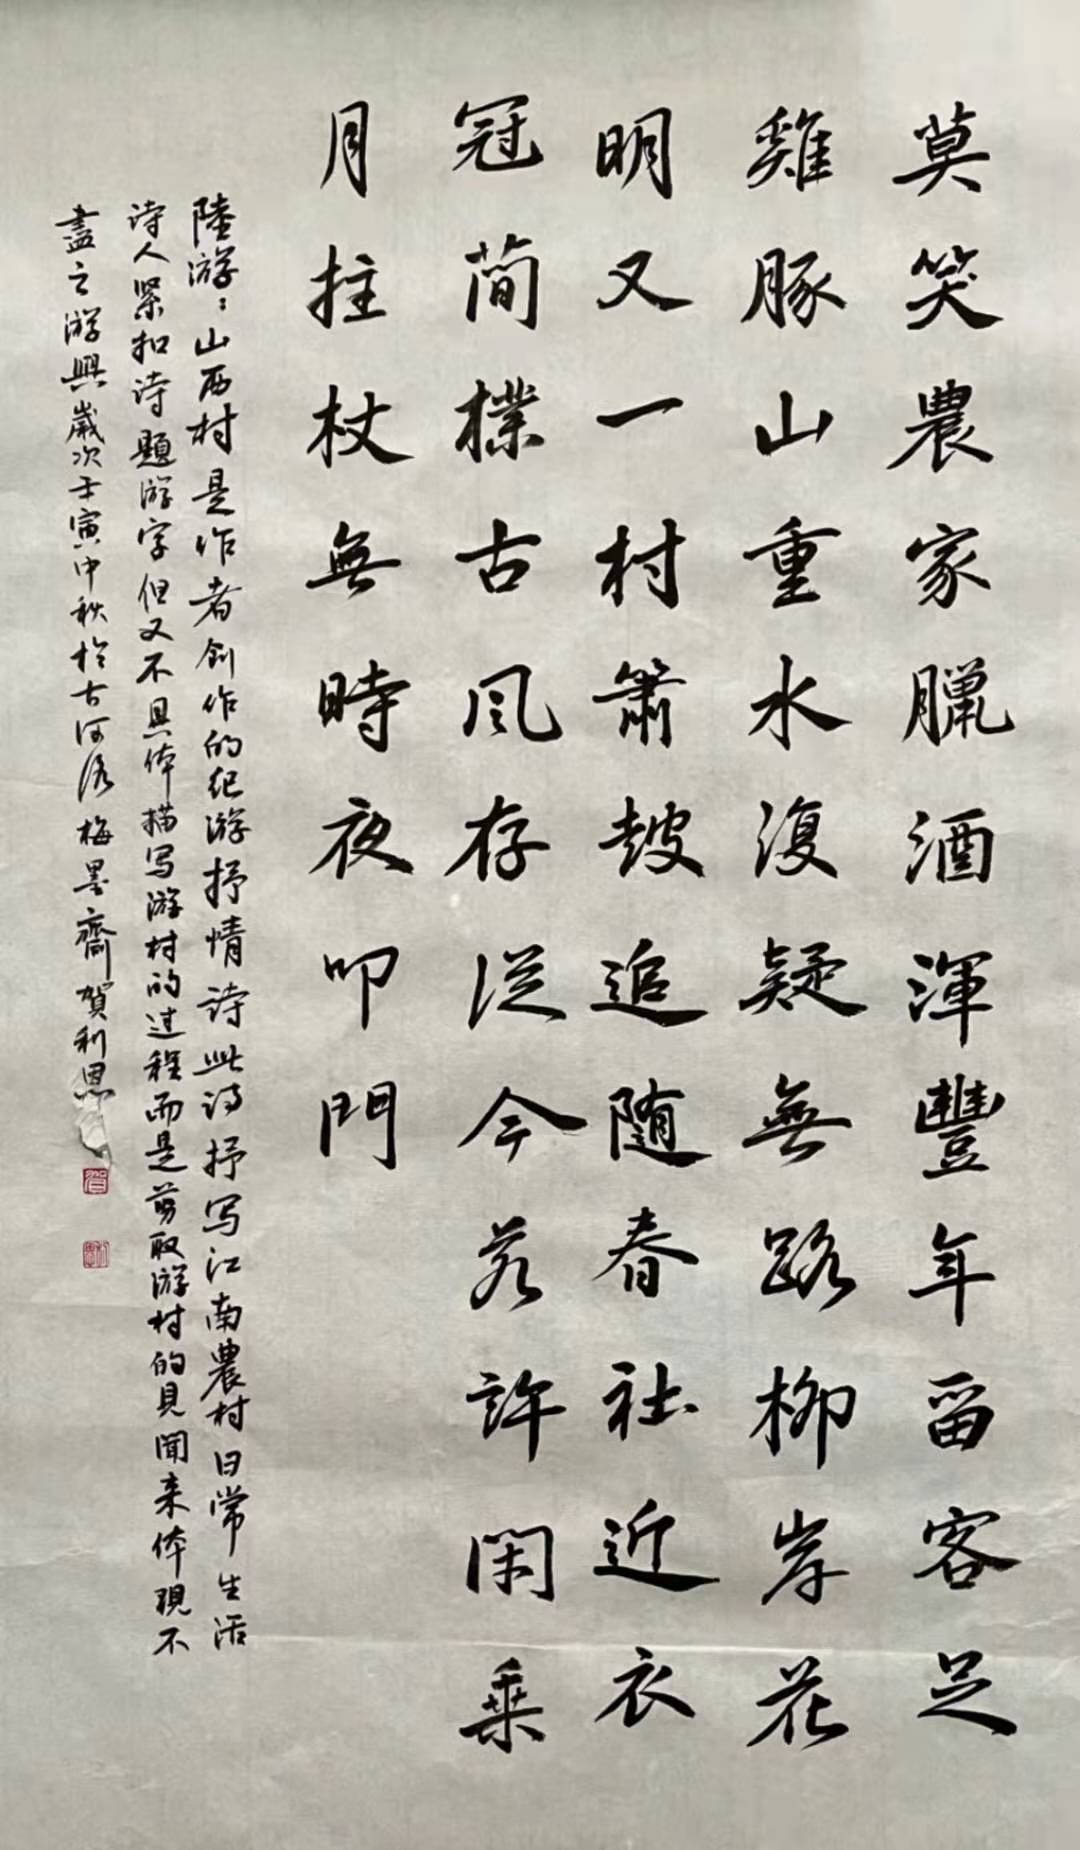 莫笑農家臘酒渾豐年留客足
雞豚山重水復疑無路柳岸花
明又一村簫鼓追随春社近衣
冠簡樸古風存從今若許閑乗
月拄杖無時夜叩門
陸游：山西村是作者創作的纪游抒情诗此诗抒写江南農村日常生活
诗人紧扣诗题游字但又不具体描写游村的过程而是剪取游村的見聞来体現不
盡之游興歲次壬寅中秋於古河洛梅墨齋賀利恩
賀